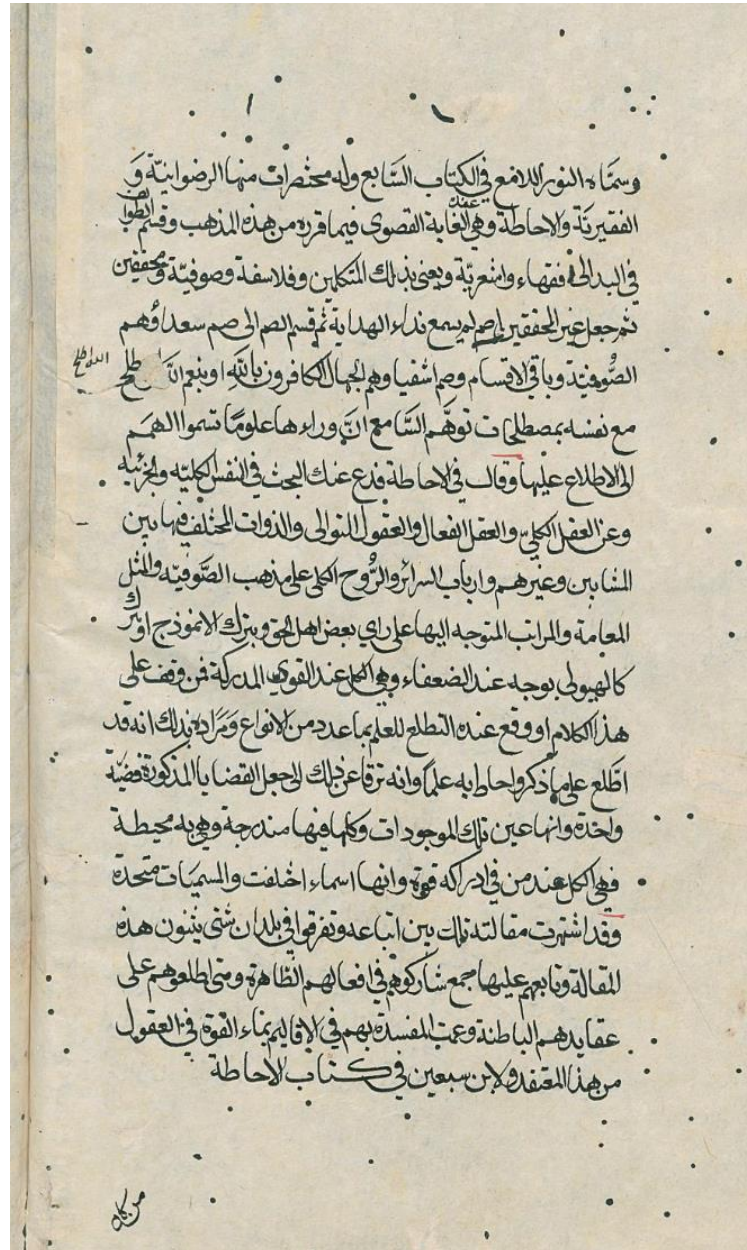 وسمّاه النور اللامع في الكتاب السّابع وله مختصرات منها الرضوانيّة و
الفقيريّة والاحاطة وهي عنده الغاية القصوى فيما قرره من هذه المذهب وقسم الطوائف
في البد الى فقهاء واشعريّة ويعني بذلك المتكلمين وفلاسفة وصوفيّة ومحققين
ثم جعل غير المحققين اصم لم يسمع نداء الهداية ثم قسم الصم الى صم سعداؤهم
الصّوفيّة وباقي الاقسام وصم اشقيا وهم الجهال الكافرون بالله او بنعم الله اصطلح
مع نفسه بمصطلحات توهّم السّامع انّ وراءها علومًا تسموا الهمم
الى الاطلاع عليها وقال في الاحاطة فدع عنك البحث في النفس الكليّه والجزئيه
وعن العقل الكليّ والعقل الفعال والعقول التوالى والذوات المختلف فيها بين
المشايين وغيرهم وارباب السرائر والرّوح الكلى على مذهب الصّوفيّه والمثل
المعامة والمراتب المتوجه اليها على راي بعض اهل الحق وبترك الانموذج او تترك
كالهيولى بوجه عند الضعفاء وهي الكل عند القوي المدركة فمن وقف على
هذا الكلام او وقع عنده التطلع للعلم بما عدد من الانواع ومراده بذلك انه قد
اطّلع على ما ذكر واحاط به علماً وانه ترقا عن ذلك الى جعل القضايا المذكورة قضيّة
واحدة وانها عين تلك الموجودات وكلها فيها مندرجة وهي به محيطة
فهي الكل عند من في ادراكه قوة وانها اسماء اختلفت والمسميات متحدة
وقد اشتهرت مقالته تلك بين اتباعه وتفرقوا في بلدان شتى يبثون هذه
المقالة وتابعهم عليها مجمع شاركوهم في افعالهم الظاهرة ومتى اطلعوهم على
عقايدهم الباطنة وعمت المفسدة بهم في الاقاليم بماء القوة في العقول
من هذا المعتقد ولابن سبعين في كتاب الاحاطة
من كان